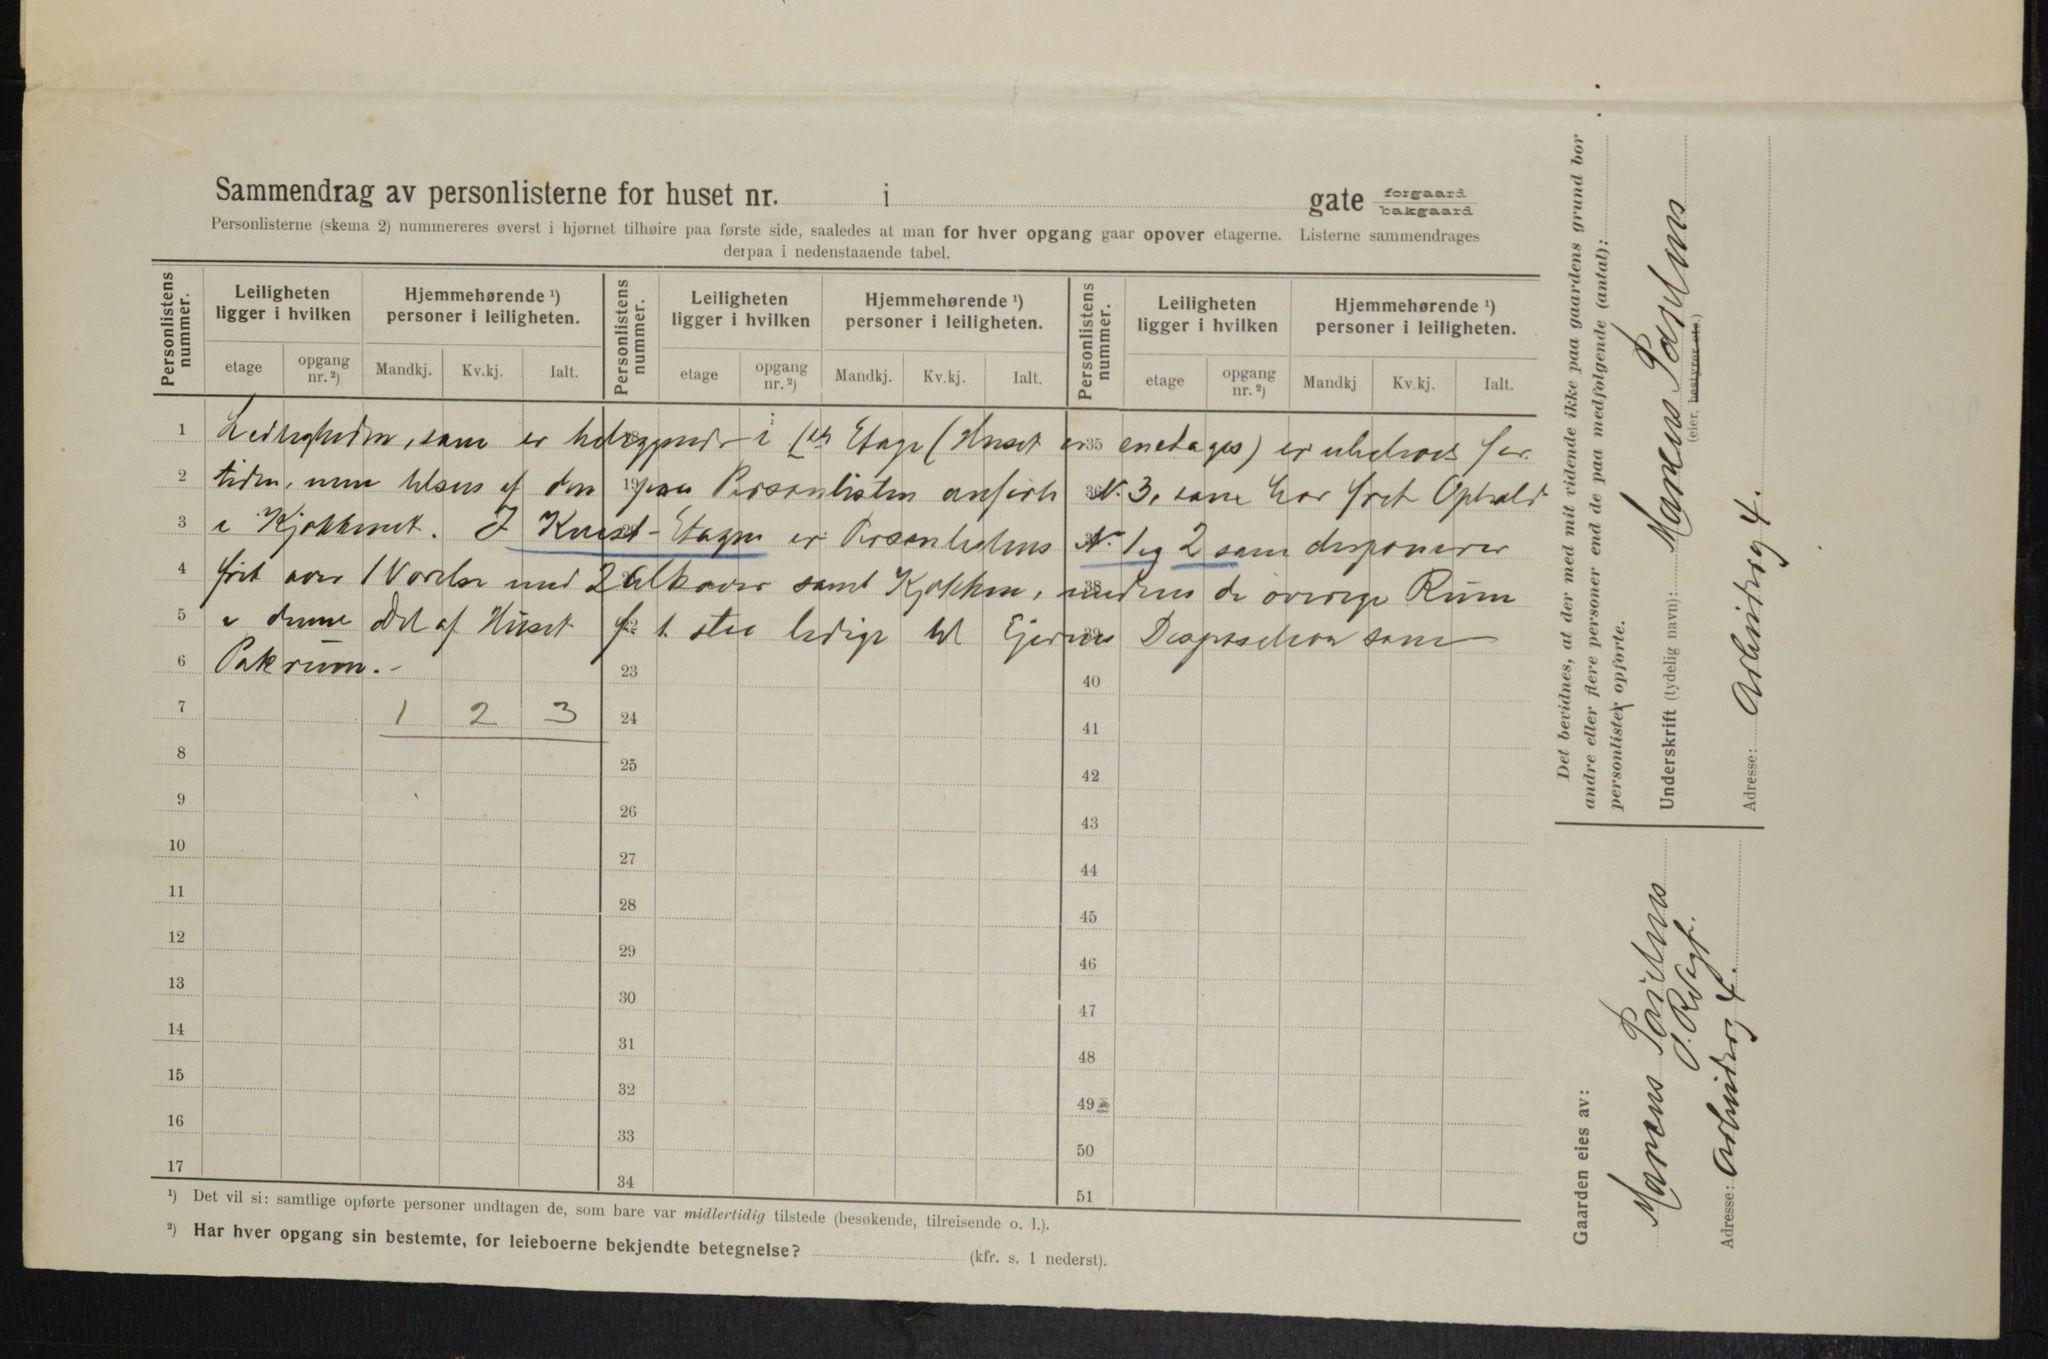 Sammendrag av personlisterne for huset nr. i gate forgaard bakgaard
Personlisterne (skema 2) nummereres øverst i hjørnet tilhøire paa første side, saaledes at man for hver opgang gaar opover etagerne. Listerne sammendrages
derpaa i nedenstaaende tabel.
Personlistens nummer. Leiligheten ligger i hvilken Hjemmehørende ¹) personer i leiligheten. Personlistens nummer. Leiligheten ligger i hvilken Hjemmehørende ¹) personer i leiligheten. Personlistens nummer. Leiligheten ligger i hvilken Hjemmehørende ¹) personer i leiligheten.
etage opgang nr. ²) Mandkj. Kv.kj. Ialt. etage opgang nr. ²) Mandkj. Kv.kj. Ialt. etage opgang nr. ²) Mandkj Kv.kj. Ialt.
1 Leiligheden, som er beliggende i 1ste Etage (Huset er 35 enetages) er ubeboet for
2 tiden, men af den 19 paa Personlisten anførte 36 N. 3, som har fret Ophold
3 i Kjøkkenet. I Kvist-Etagen er Personlistens N. 1 og 2 som disponerer
4 fret over 1 Værelse med 2 Alkover samt Kjøkken, 38 medens de øvrige Rum
5 i denne Del af Huset f. t. staa ledige til Ejerens 39 Disposition som
6 Pakrum. - 23 40
7 1 2 3 24 41
8 25 42
9 26 43
10 27 44
11 28 45
12 29 46
13 30 47
14 31 48
15 32 49
16 33 50
17 34 51
¹) Det vil si: samtlige opførte personer undtagen de, som bare var midlertidig tilstede (besøkende, tilreisende o. l.).
²) Har hver opgang sin bestemte, for leieboerne bekjendte betegnelse? (kfr. s. 1 nederst).
Det bevidnes, at der med mit vidende ikke paa gaardens grund bor
andre eller flere personer end de paa medfølgende (antal):
personlister opførte.
Underskrift (tydelig navn): Marcus Paulus
(eier, bestyrer etc.)
Adresse: 4.
Gaarden eies av:
Marcus Paulus
Adresse: 4.